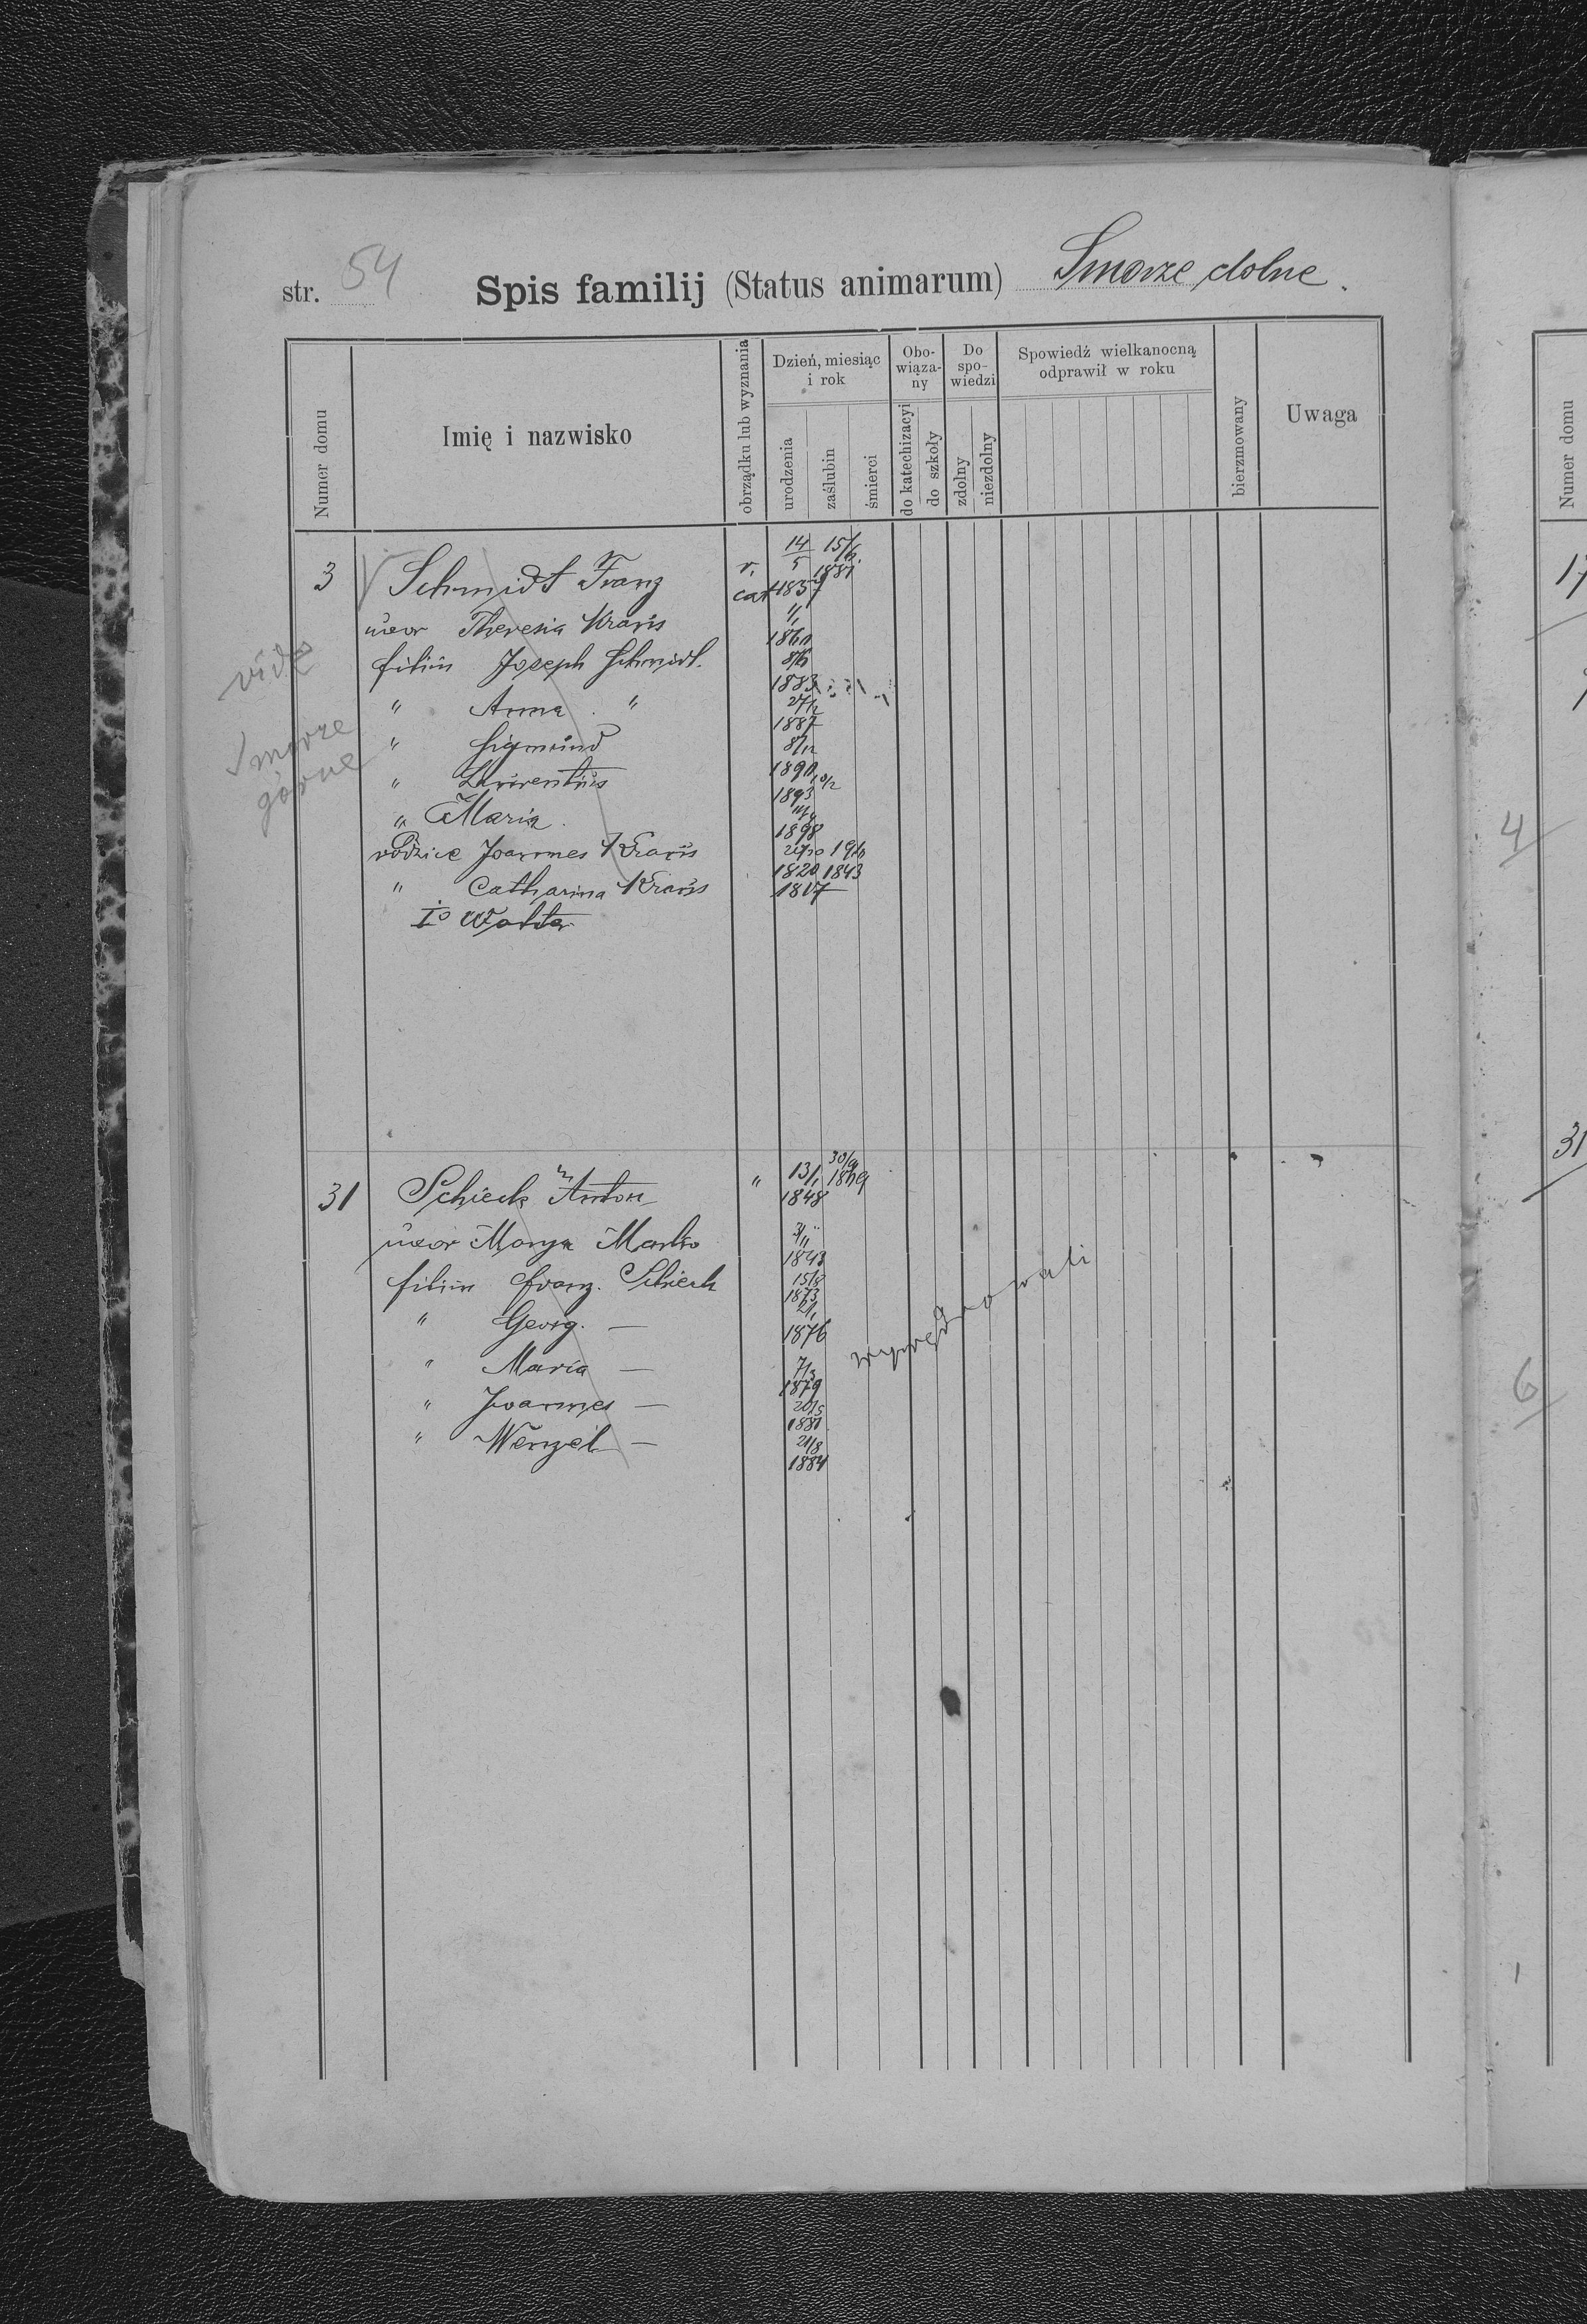 str. 54 Spis familij (Status animarum) Smorze dolne.
Numer domu
Imię i nazwisko
obrządku lub wyznania
Dzień, miesiąc i rok
urodzenia
zaślubin
śmierci
Obo-
wiąza-
ny
do katechizacyi
do szkoły
Do
spo-
wiedzi
zdolny
niezdolny
Spowiedź wielkanocną
odprawił w roku
bierzmowany
Uwaga
3 Schmidt Franz r. cat 14/5 1857 15/6. 1881
uxor Theresia Kraus 1860
filiu Joseph Schmidt. 8/6 1883
" Anna " 27/12 1887
" Sigmund 8/12 1890
" Laurentius 10/2 1893
" Maria 1898
rodzice Joannes Kraus 1820 1843
" Catharina Kraus 1817
Io Wolta
vide
Smorze
górne
31 Schieck Anton " 13/1 1848 30/9 1869
uxor Marya Marko 1843
filiu Franz. Schieck 15/8 1873
" Georg. — 21/1 1876
" Maria — 7/3 1879
" Joannes — 20/5 1881
" Wenzel — 21/8 1884
wywędrowali
Numer domu
17
4
31
6